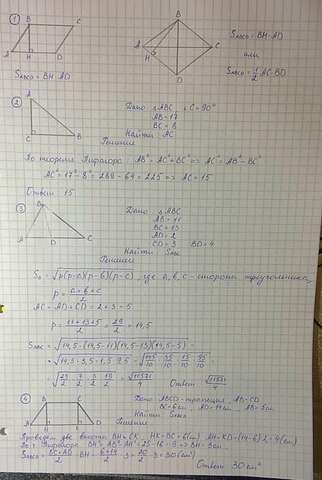 ① B C
A H D
S_ABCD = BH·AD
B
A C
H
D
S_ABCD = BH·AD
или
S_ABCD = 1/2 AC·BD
②
A
C B
Дано △ABC ∠C = 90°
AB = 17
BC = 8
Найти AC
Решение
По теореме Пифагора AB² = AC² + BC² => AC² = AB² - BC²
AC² = 17² - 8² = 289 - 64 = 225 => AC = 15
Ответ 15
③
B
A D C
Дано △ABC
AB = 11
BC = 13
AD = 2
CD = 3 BD = 4
Найти S_ABC
Решение
S_△ = √p(p-a)(p-b)(p-c), где a, b, c - стороны треугольника,
p = (a+b+c)/2
AC = AD + CD = 2 + 3 = 5
p = (11+13+5)/2 = 29/2 = 14,5
S_ABC = √14,5·(14,5-11)(14,5-13)(14,5-5) =
= √14,5·3,5·1,5·9,5 = √145/10·35/10·15/10·95/10 =
= √29/2·7/2·3/2·19/2 = √11571/4 Ответ √11571/4
④
B C
A D
Дано ABCD - трапеция AB = CD
BC = 6см AD = 14см AB = 5см
Найти S_ABCD
Решение
Проведем две высоты BH и CK HK = BC = 6(см) AH = KD = (14-6):2 = 4(см)
По т. Пифагора BH² = AB² - AH² = 25 - 16 = 9 => BH = 3см
S_ABCD = (BC+AD)/2 · BH = (6+14)/2 · 3 = 20/2 · 3 = 30(см²)
Ответ 30 см²